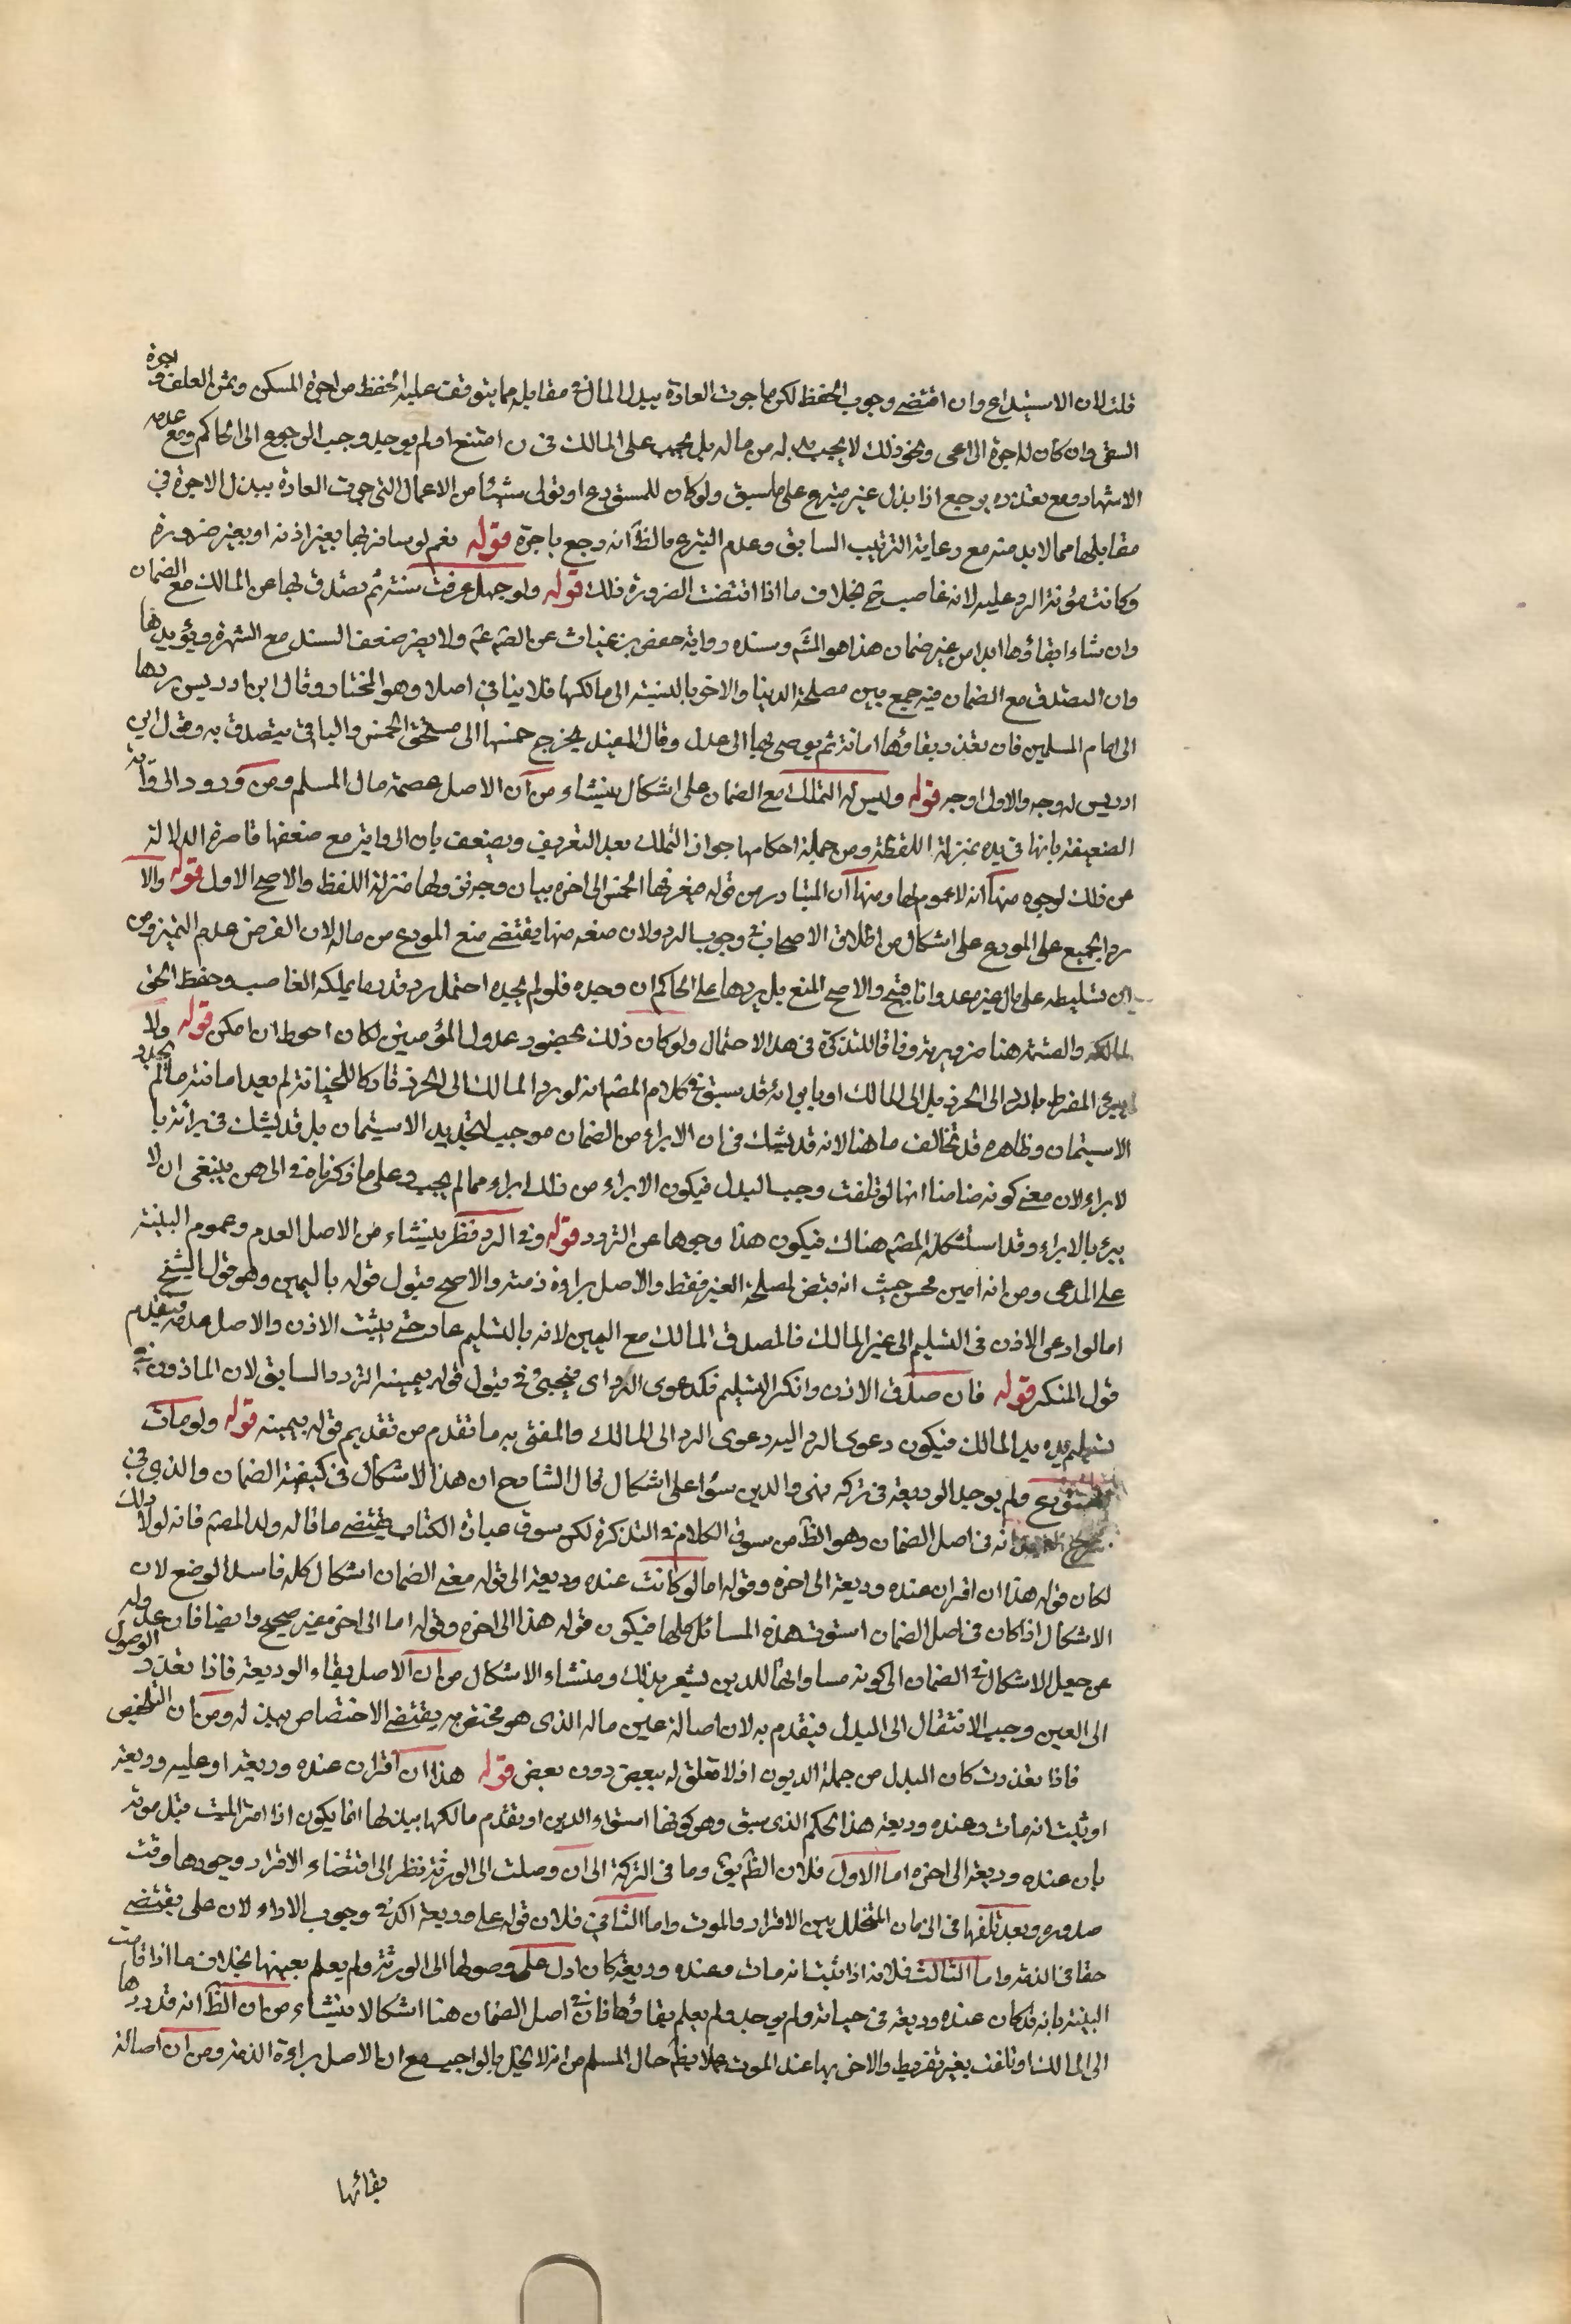 قلت لان الاستيداع وان اقتضى وجوب الحفظ لكن ما جرت العادة ببذل المال في مقابله مما يتوقف عليه الحفظ من اجرة المسكن وثمن العلف واجرة
السقي وان كان لا اجرة الراعي ونحو ذلك لا يجب بذله من ماله بل يجب على المالك فان امتنع او لم يوجد وجب الرجوع الى الحاكم ومع عدمه
الاشهاد ومع تعذره يرجع اذا بذل غير متبرع على ما سبق ولو كان للمستودع او تولى شيئا من الاعمال التي جرت العادة ببذل الاجرة في
مقابلها مما لا بد منه مع رعاية الترتيب السابق وعدم التبرع فالظ انه رجع باجرة قوله نعم لو سافر بها بغير اذنه او بغير ضرورة
وكانت مؤنة الرد عليه لانه غاصب ح بخلاف ما اذا اقتضت الضرورة ذلك قوله ولو جهل عرفت سنة ثم تصدق بها عن المالك مع الضمان
وان شاء ابقاؤها ابدا من غير ضمان هذا هو المشه وسنده رواية حفص بن غياث عن الصم عم ولا يضر ضعف السند مع الشهرة ويؤيدها
وان التصدق مع الضمان فيه جمع بين مصلحة الدنيا والاخر بالنسبة الى مالكها فلا ينافي اصلا وهو المختار وقال ابن ادريس يردها
الى امام المسلمين فان تعذر يبقاؤها امانة ثم يوصي بها الى عدل وقال المفيد يخرج خمسها الى مستحق الخمس والباقي يتصدق به وقول ابن
ادريس له وجه والاول اوجه قوله وليس له التملك مع الضمان على اشكال ينشاء من ان الاصل عصمة مال المسلم ومن ورود الرواية
الضعيفة بانها في يده بمنزلة اللقطة ومن جملة احكامها جواز التملك بعد التعريف ويضعف بان الرواية مع ضعفها قاصرة الدلالة
عن ذلك لوجوه منها انه لا عموم لها ومنها ان المتبادر من قوله فيعرفها الخمس الى اخره بيان وجه قولها منزلة اللفظ والاصح الاول قوله والا
رد الجميع على المودع على اشكال من اطلاق الاصحاب في وجوب الرد ولان منعه منها يقتضي منع المودع من ماله لان الفرض عدم التميز ومن
ان تسليطه على مال غيره عدوانا قبيح والاصح المنع بل يردها على الحاكم ان وجده فلو لم يجده احتمل رد قدر ما يملكه الغاصب وحفظ الحق
لمالكه والقسمة هنا ضرورية وفاقا للتذكرة في هذا الاحتمال ولو كان ذلك بحضور عدول المؤمنين لكان احوط ان امكن قوله ولا
يبرئ المفرط بالرد الى الحرز بل الى المالك او بابرائه قد سبق في كلام المصم انه لو رد المالك الى الحرز تاركا للخيانة لم يعد امانته ما لم يجدد
الاستيمان وظاهره قد تخالف ما هنا لانه قد يشك في ان الابراء من الضمان موجب لتجديد الاستيمان بل قد يشك في برائته با
لابراء لان معنى كونه ضامنا انها لو تلفت وجب البدل فيكون الابراء من ذلك ابراء مما لم يجب وعلى ما ذكرناه في الرهن ينبغي ان لا
يبرئ بالابراء وقد استشكله المصم هناك فيكون هذا وجوها عن التردد قوله وفي الرد نظر ينشاء من الاصل العدم وعموم البينة
على المدعي ومن انه امين محسن حيث انه قبض لمصلحة الغير فقط والاصل براءة ذمته والاصح قبول قوله باليمين وهو قول الشيخ
اما لو ادعى الاذن في التسليم الى غير المالك فالمصدق المالك مع اليمين لانه بالتسليم عاد حتى يثبت الاذن والاصل عدمه فيقدم
قول المنكر قوله فان صدق الاذن وانكر التسليم فكدعوى الرد اي فيجيئ في قبول قوله بيمينه التردد السابق لان الماذون في
تسليم يده يد المالك فيكون دعوى الرد اليه دعوى الرد الى المالك والمفتى به ما تقدم من تقديم قوله بيمينه قوله ولو مات
المستودع ولم يوجد الوديعة في تركته فهي والدين سواء على اشكال قال الشارح ان هذا الاشكال في كيفية الضمان والذي في
انه في اصل الضمان وهو الظ من سوق الكلام في التذكرة لكن سوق عبارة الكتاب يقتضي ما قاله ولد المصم فانه لولا ذلك
لكان قوله هذا ان اقر ان عنده وديعة الى اخره وقوله اما لو كانت عنده وديعة الى قوله ففي الضمان اشكال كله فاسد الوضع لان
الاشكال اذا كان في اصل الضمان استوت هذه المسائل كلها فيكون قوله هذا الى اخره وقوله اما الى اخره غير صحيح وايضا فان عدوله
عن جعل الاشكال في الضمان الى كونه مساوايا للدين يشعر بذلك ومنشاء الاشكال من ان الاصل بقاء الوديعة فاذا تعذر الوصول
الى العين وجب الانتقال الى البدل فيقدم به لان اصالة عين ماله الذي هو مختص به يقتضي الاختصاص ببدله ومن ان التخصيص
فاذا تعذرت كان البدل من جملة الديون اذ لا تعلق له ببعض دون بعض قوله هذا ان اقر ان عنده وديعة او عليه وديعة
او ثبت انه مات وعنده وديعة هذا الحكم الذي سبق وهو كونها استواء الدين او تقدم مالكها ببدلها انما يكون اذا اقر الميت قبل موته
بان عنده وديعة الى اخره اما الاول فلان الظ بقاؤها في التركة الى ان وصلت الى الورثة نظرا الى اقتضاء الاقرار وجودها وقت
صدوره وبعد تلفها في الزمان المتخلل بين الاقرار والموت واما الثاني فلان قوله علي وديعة اكد في وجوب الاداء لان علي يقتضي
حقا في الذمة واما الثالث فلانه اذا ثبت انه مات وعنده وديعة كان ادل على وصولها الى الورثة ولم يعلم بعينها بخلاف ما اذا قامت
البينة بانه قد كان عنده وديعة في حياته ولم يوجد ولم يعلم بقاؤها فان في اصل الضمان هنا اشكالا ينشاء من ان الظ انه قد ردها
الى المالك او تلفت بغير تفريط والا اخبر بها عند الموت عملا بظ حال المسلم من انه لا يخل بالواجب مع ان الاصل براءة الذمة ومن ان اصالة
بقائها